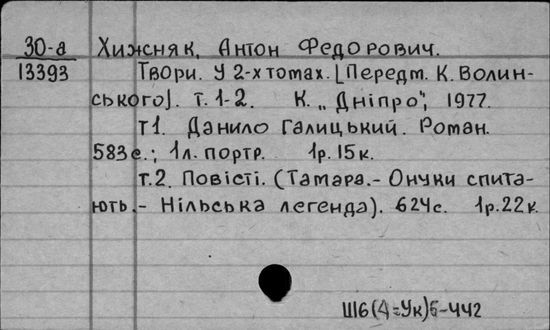 30-а Хижняк, Антон Федорович.
13393 Твори. У 2-х томах. [Передм. К. Волин-
ського]. т. 1-2. К. „Дніпро", 1977.
т1. Данило Галицький. Роман.
583с.; 1л. портр. 1р. 15к.
т.2. Повісті. (Тамара. - Онуки спита-
ють. - Нільська легенда). 624с. 1р. 22к.
Ш6(4=Ук)5-442